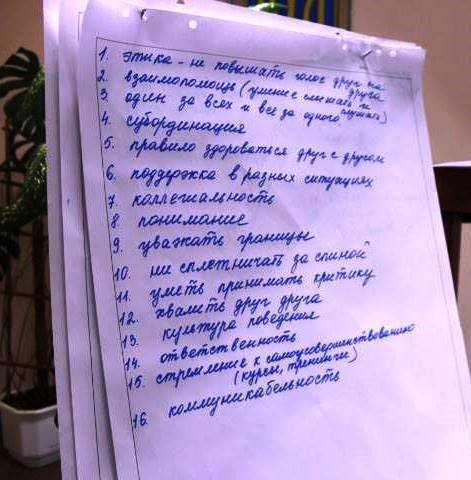 1. этика - не повышать голос друг на
друга
2. взаимопомощь (умение слышать и
слушать)
3. один за всех и все за одного
4. субординация
5. правило здороваться друг с другом
6. поддержка в разных ситуациях
7. коллегиальность
8. понимание
9. уважать границы
10. не сплетничать за спиной
11. уметь принимать критику
12. хвалить друг друга
13. культура поведения
14. ответственность
15. стремление к самоусовершенствованию
(курсы, тренинги)
16. коммуникабельность